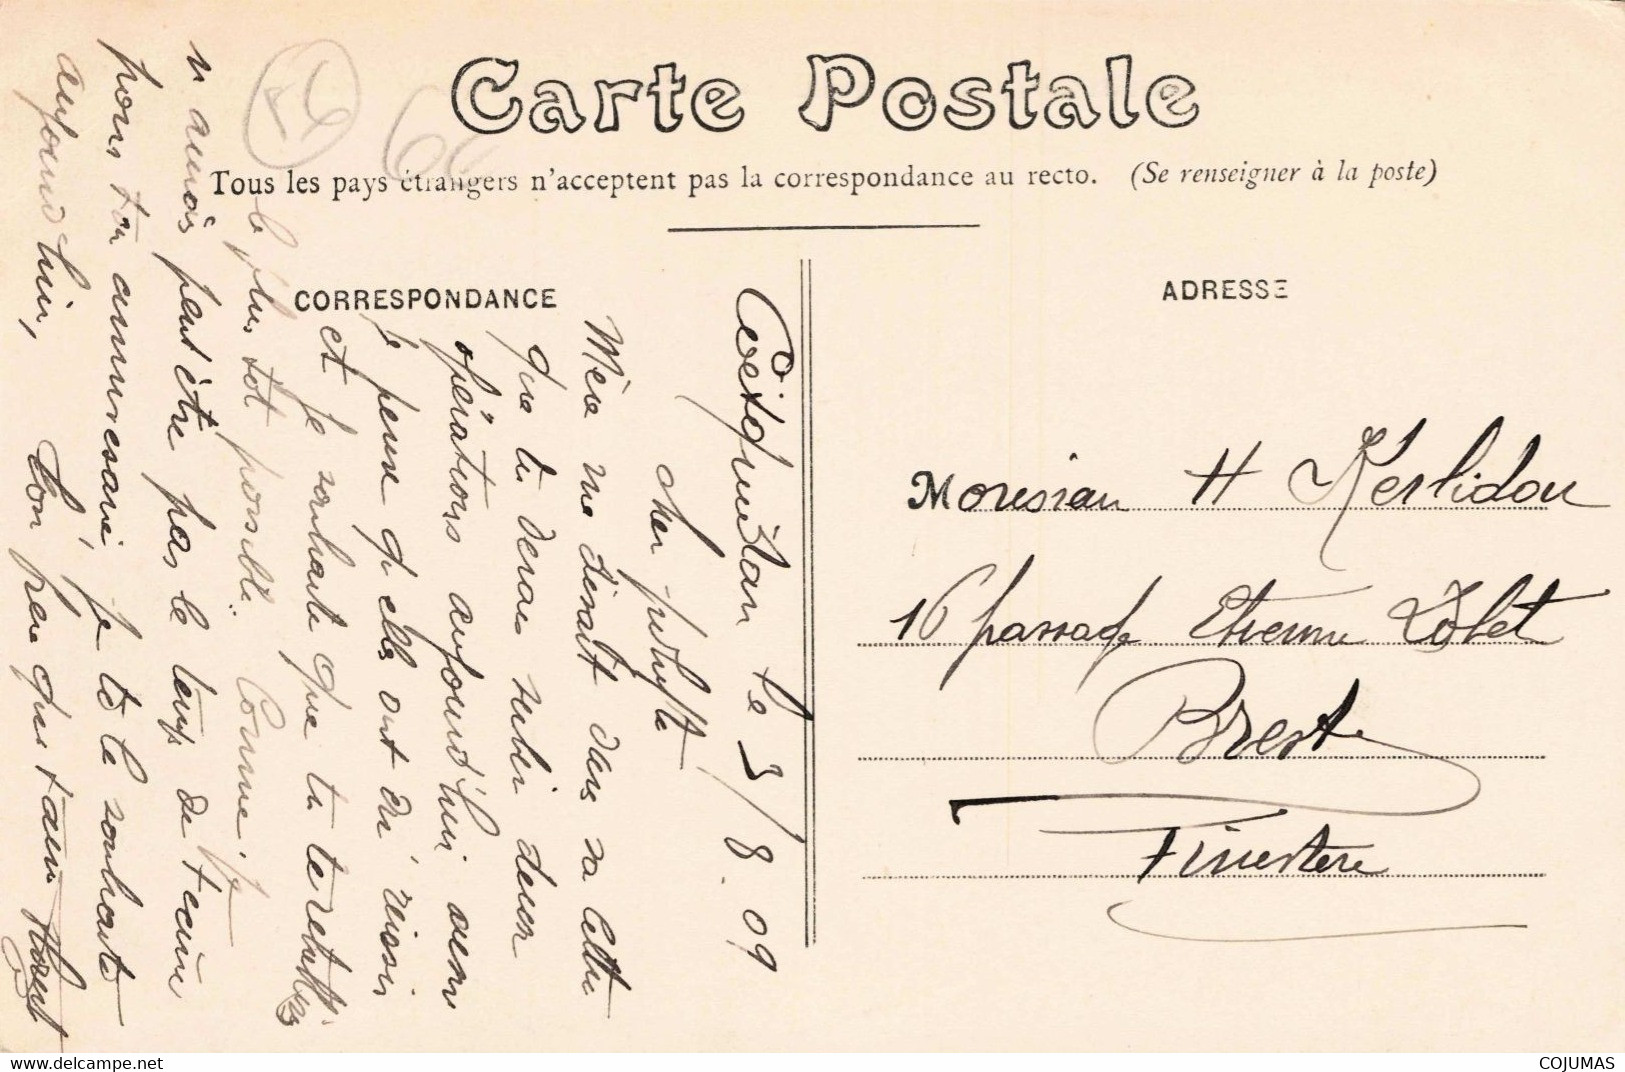 Carte Postale
Tous les pays étrangers n'acceptent pas la correspondance au recto. (Se renseigner à la poste)
CORRESPONDANCE
ADRESSE
Coëtquidan le 3/8.09
cher
Mère me disait dans sa lettre
que tu devais subir deux
opérations aujourd'hui
je pense qu'elles ont dû réussir
et je souhaite que tu te rétablisses
le plus tôt possible. Comme je
n'aurais peut'être pas le temps de t'écrire
pour ton anniversaire, je te le souhaite
aujourd'hui, ton frère qui t'aime
Monsieur H Kerlidou
16 passage Etienne Dolet
Brest
Finistère
COJUMAS